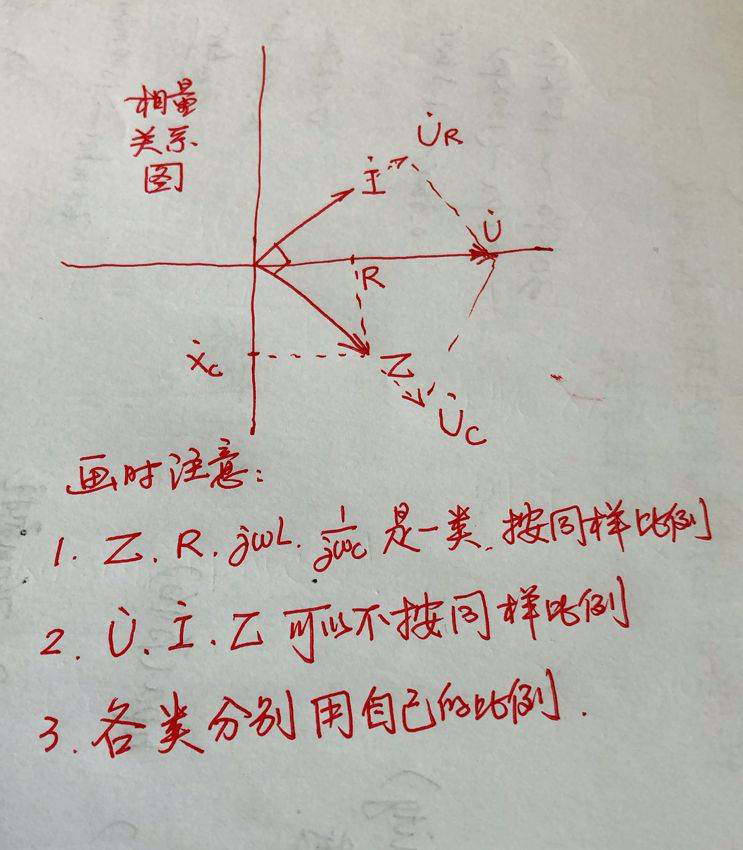 相量
关系
图
U̇R
İ
U̇
R
ẋc
Z
U̇c
画时注意:
1. Z. R. jωL. 1/jωc 是一类. 按同样比例
2. U̇. İ. Z 可以不按同样比例
3. 各类分别用自己的比例.